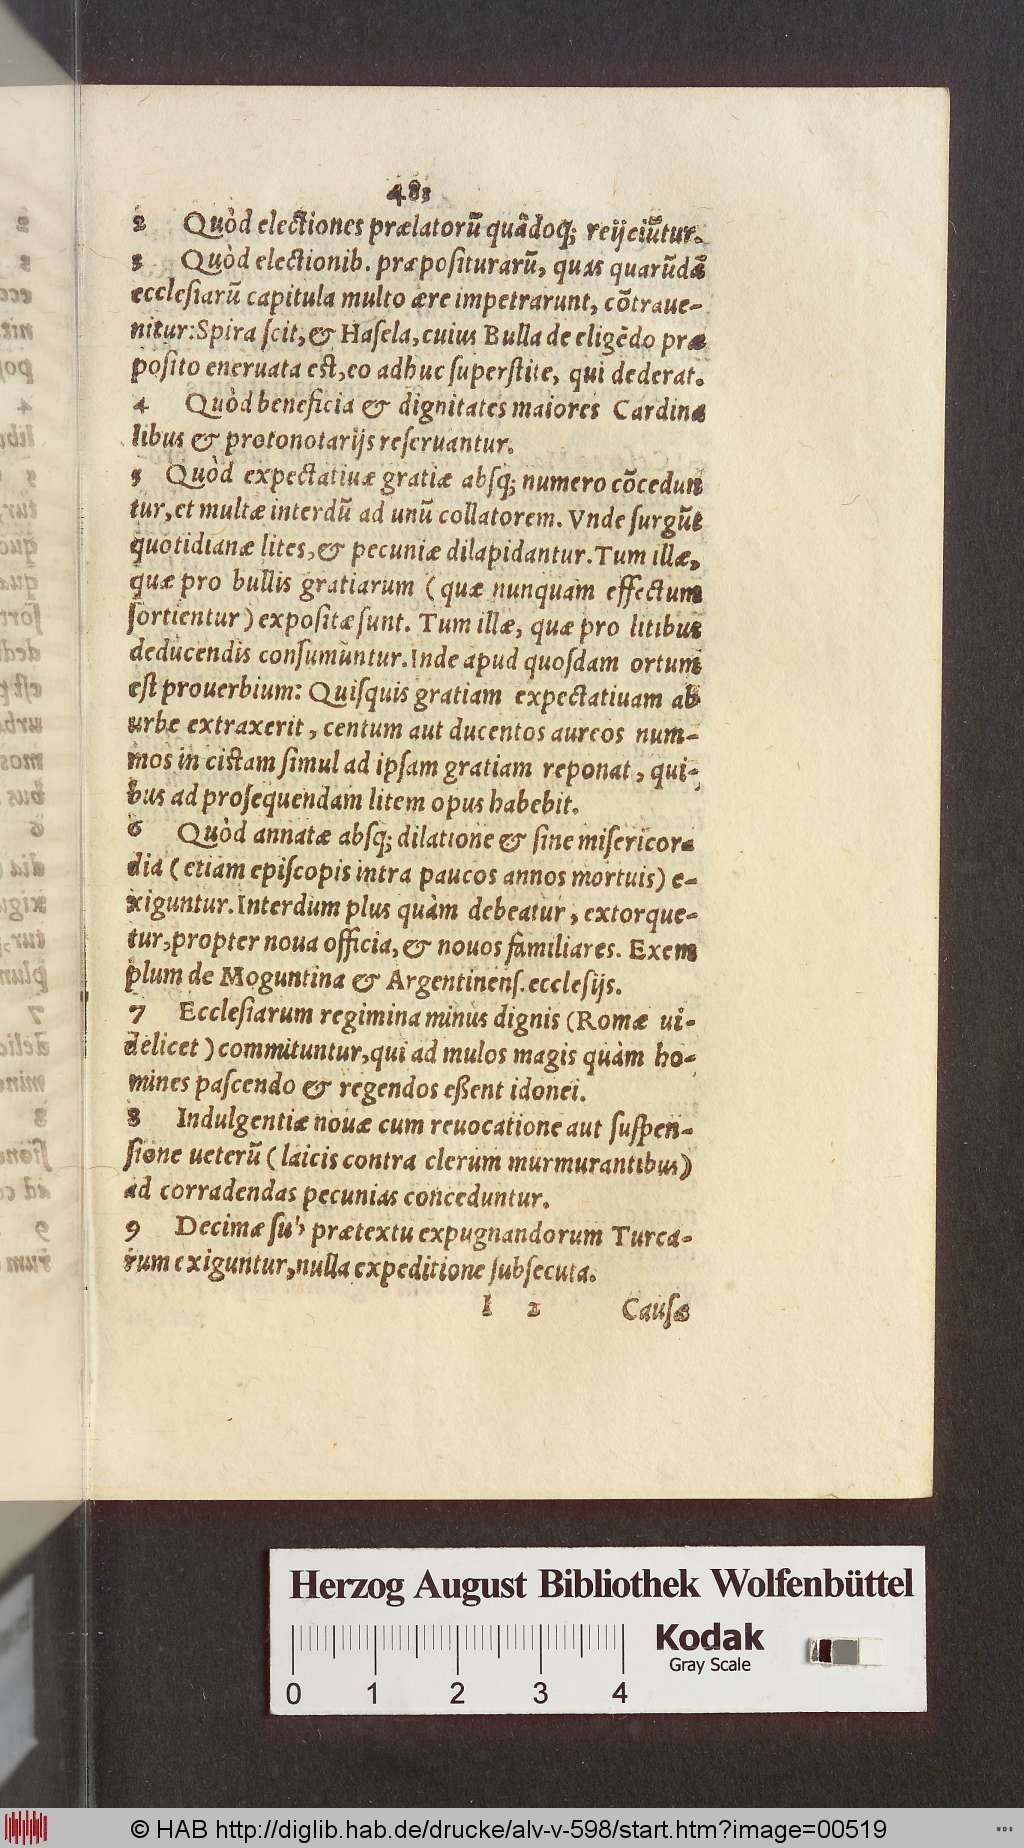 483
2 Quòd electiones prælatorũ quãdoq; reijciũtur.
3 Quòd electionib. præpositurarũ, quas quarũdã
ecclesiarũ capitula multo ære impetrarunt, cõtraue-
nitur: Spira scit, & Hasela, cuius Bulla de eligẽdo præ
posito eneruata est, eo adhuc superstite, qui dederat.
4 Quòd beneficia & dignitates maiores Cardina
libus & protonotarijs reseruantur.
5 Quòd expectatiuæ gratiæ absq; numero cõcedun
tur, et multæ interdũ ad unũ collatorem. Vnde surgũt
quotidianæ lites, & pecuniæ dilapidantur. Tum illæ,
quæ pro bullis gratiarum (quæ nunquam effectum
sortientur) expositæ sunt. Tum illæ, quæ pro litibus
deducendis consumuntur. Inde apud quosdam ortum
est prouerbium: Quisquis gratiam expectatiuam ab
urbe extraxerit, centum aut ducentos aureos num-
mos in cistam simul ad ipsam gratiam reponat, qui-
bus ad prosequendam litem opus habebit.
6 Quòd annatæ absq; dilatione & sine misericor-
dia (etiam episcopis intra paucos annos mortuis) e-
xiguntur. Interdum plus quàm debeatur, extorque-
tur, propter noua officia, & nouos familiares. Exem
plum de Moguntina & Argentinens. ecclesijs.
7 Ecclesiarum regimina minus dignis (Romæ ui-
delicet) committuntur, qui ad mulos magis quàm ho-
mines pascendo & regendos eßent idonei.
8 Indulgentiæ nouæ cum reuocatione aut suspen-
sione ueterũ (laicis contra clerum murmurantibus)
ad corradendas pecunias conceduntur.
9 Decimæ sub prætextu expugnandorum Turca-
rum exiguntur, nulla expeditione subsecuta.
l 2 Causæ
Herzog August Bibliothek Wolfenbüttel
Kodak
Gray Scale
0 1 2 3 4
© HAB http://diglib.hab.de/drucke/alv-v-598/start.htm?image=00519